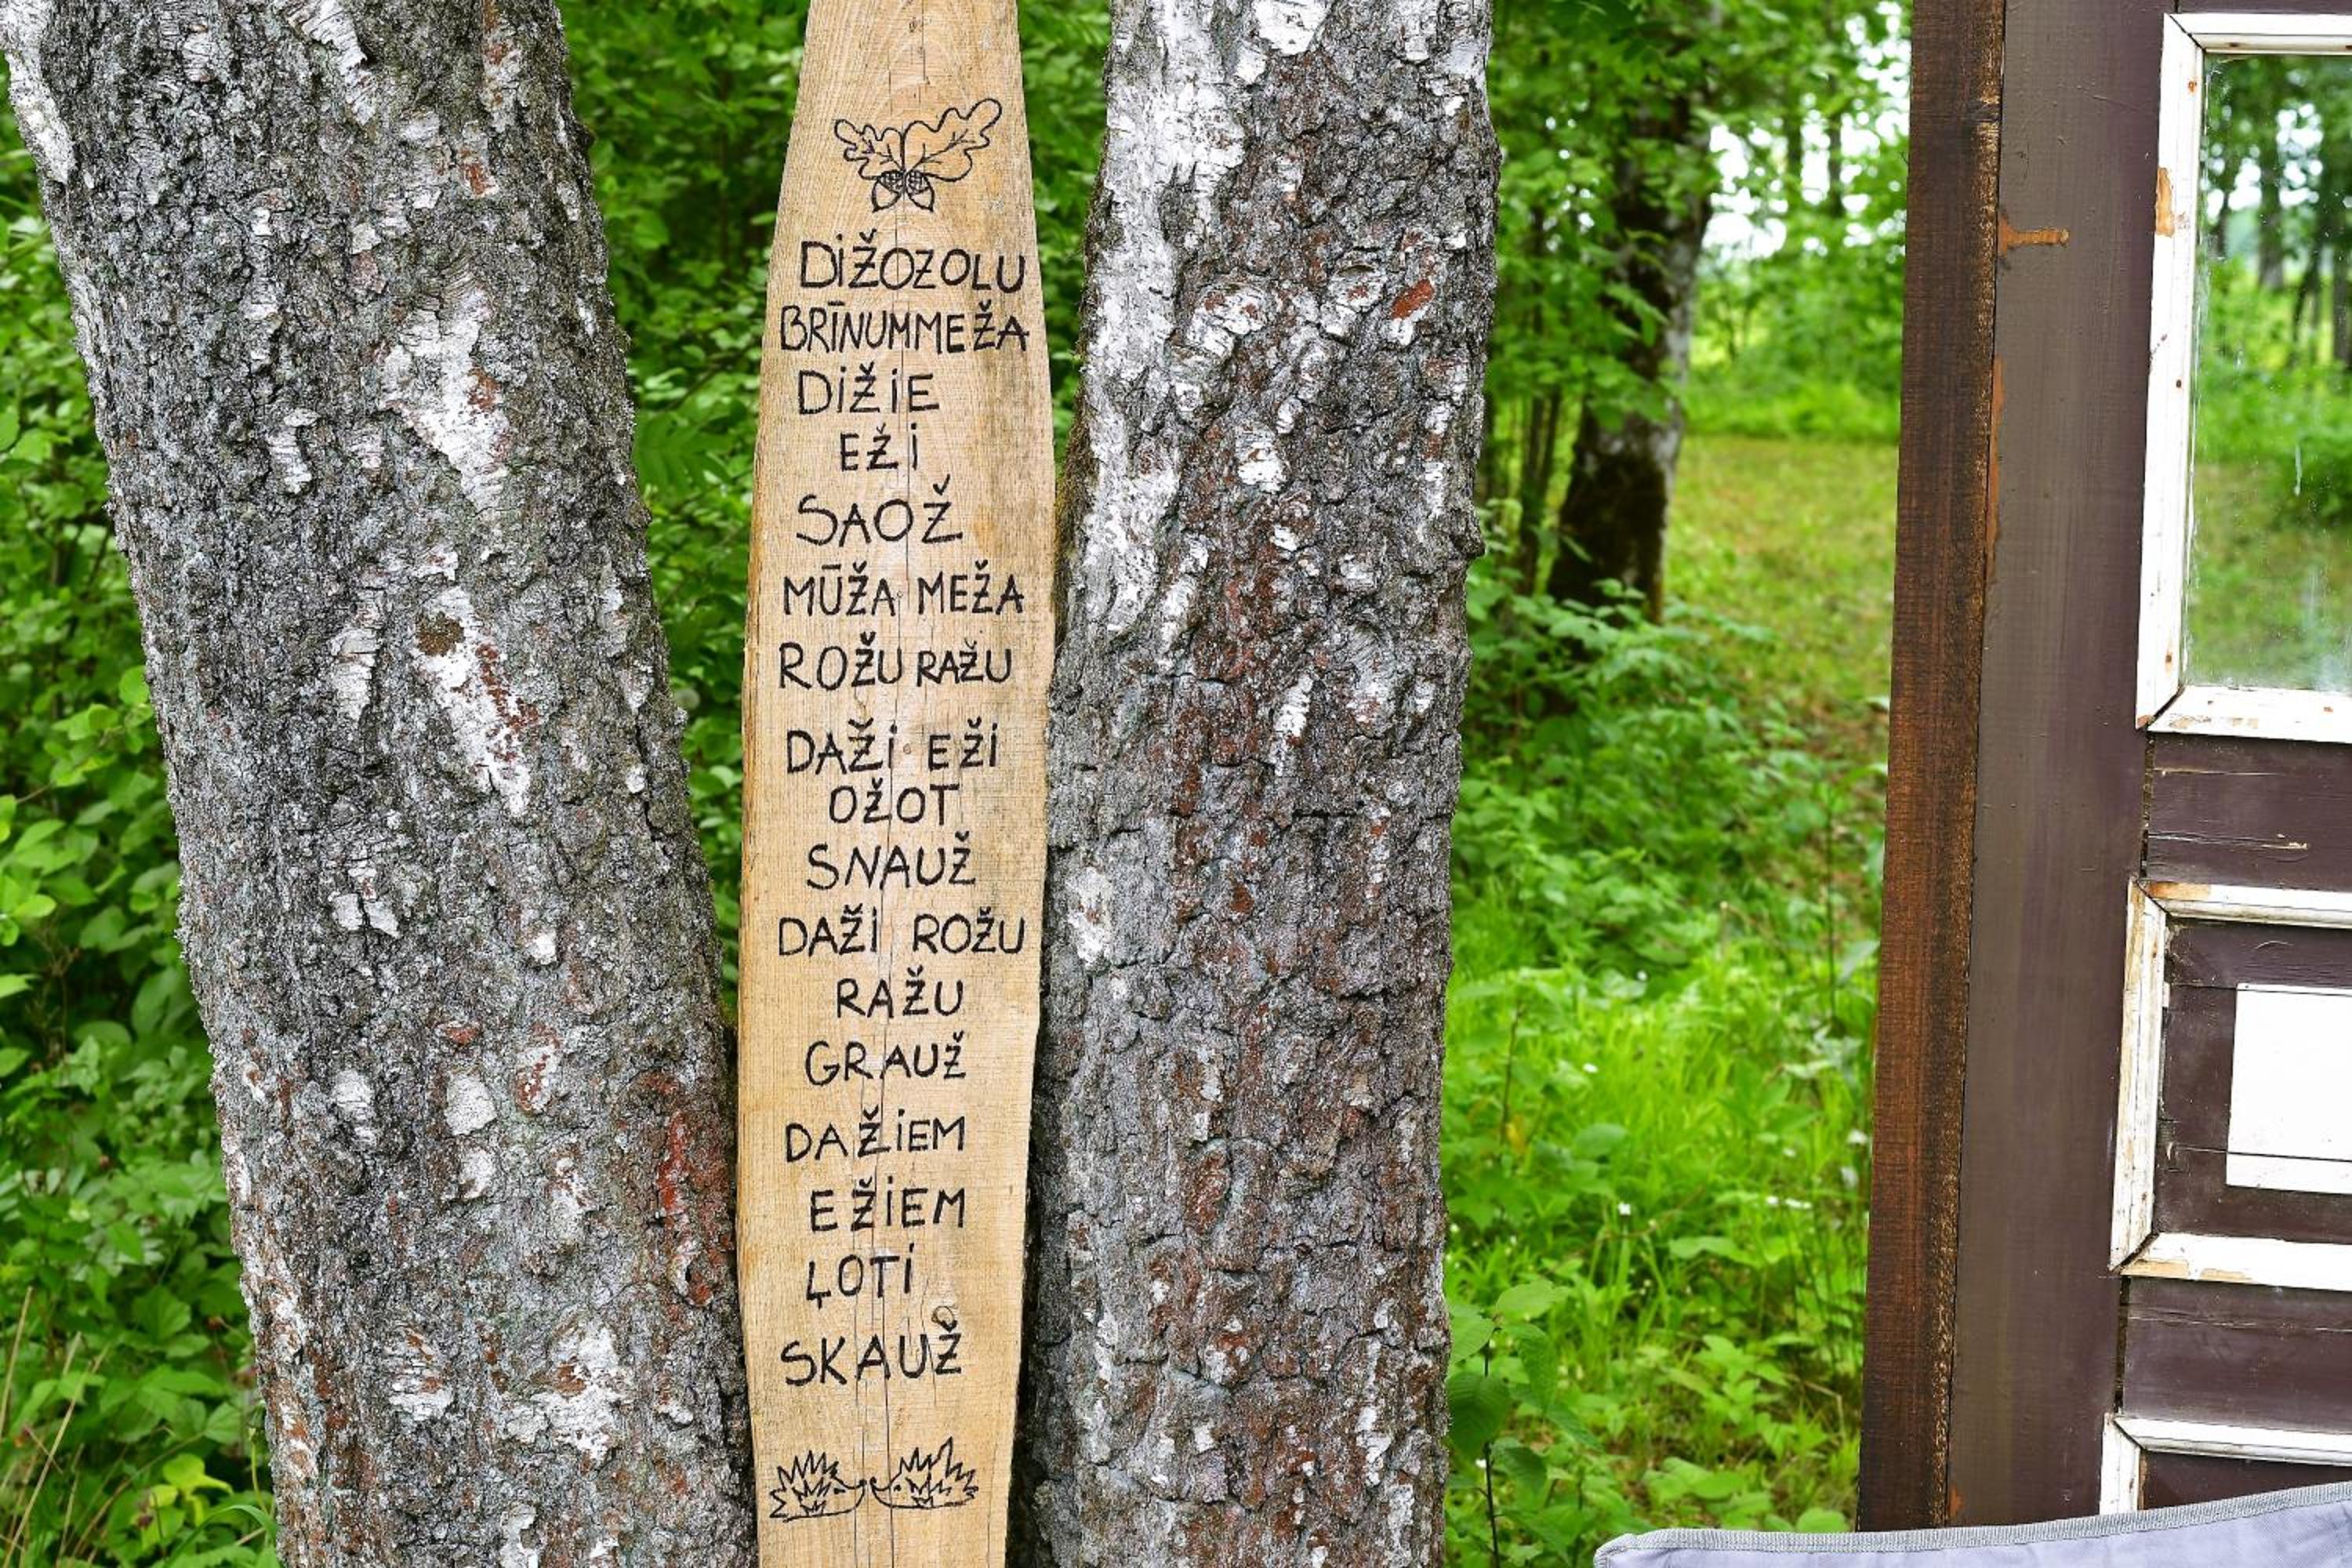 DIŽOZOLU
BRĪNUMMEŽA
DIŽIE
EŽI
SAOŽ
MŪŽA MEŽA
ROŽU RAŽU
DAŽI EŽI
OŽOT
SNAUŽ
DAŽI ROŽU
RAŽU
GRAUŽ
DAŽIEM
EŽIEM
ĻOTI
SKAUŽ